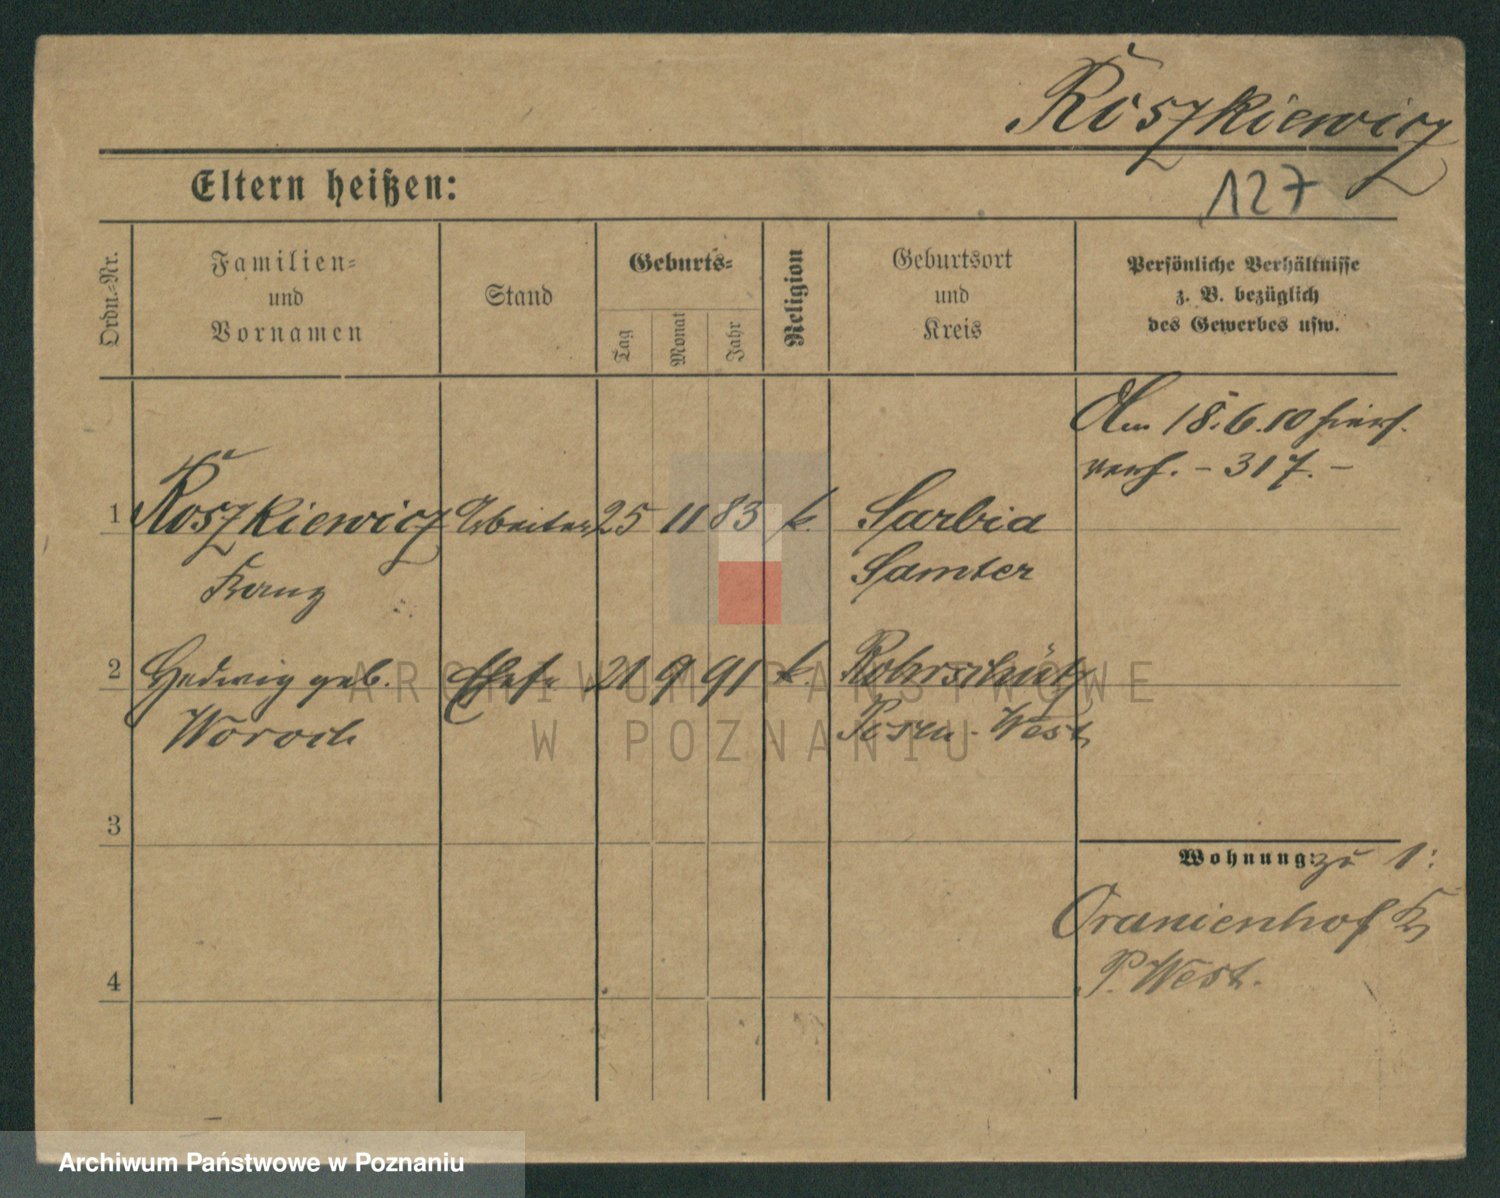 Roszkiewicz
127
Eltern heißen:
Ordn.-Nr.
Familien-
und
Vornamen
Stand
Geburts-
Tag
Monat
Jahr
Religion
Geburtsort
und
Kreis
Persönliche Verhältnisse
z. B. bezüglich
des Gewerbes usw.
Am 18.6.10 hiers.
verh. - 317. -
1 Roszkiewicz Arbeiter 25 11 83 k. Sarbia
Franz Samter
2 Hedwig geb. Ehefr. 21 9 91 k. Rohrschütz
Woroch Posen-West
3
Wohnung: zu 1:
Oranienhof K
P. West.
4
ARCHIWUM PAŃSTWOWE
W POZNANIU
Archiwum Państwowe w Poznaniu